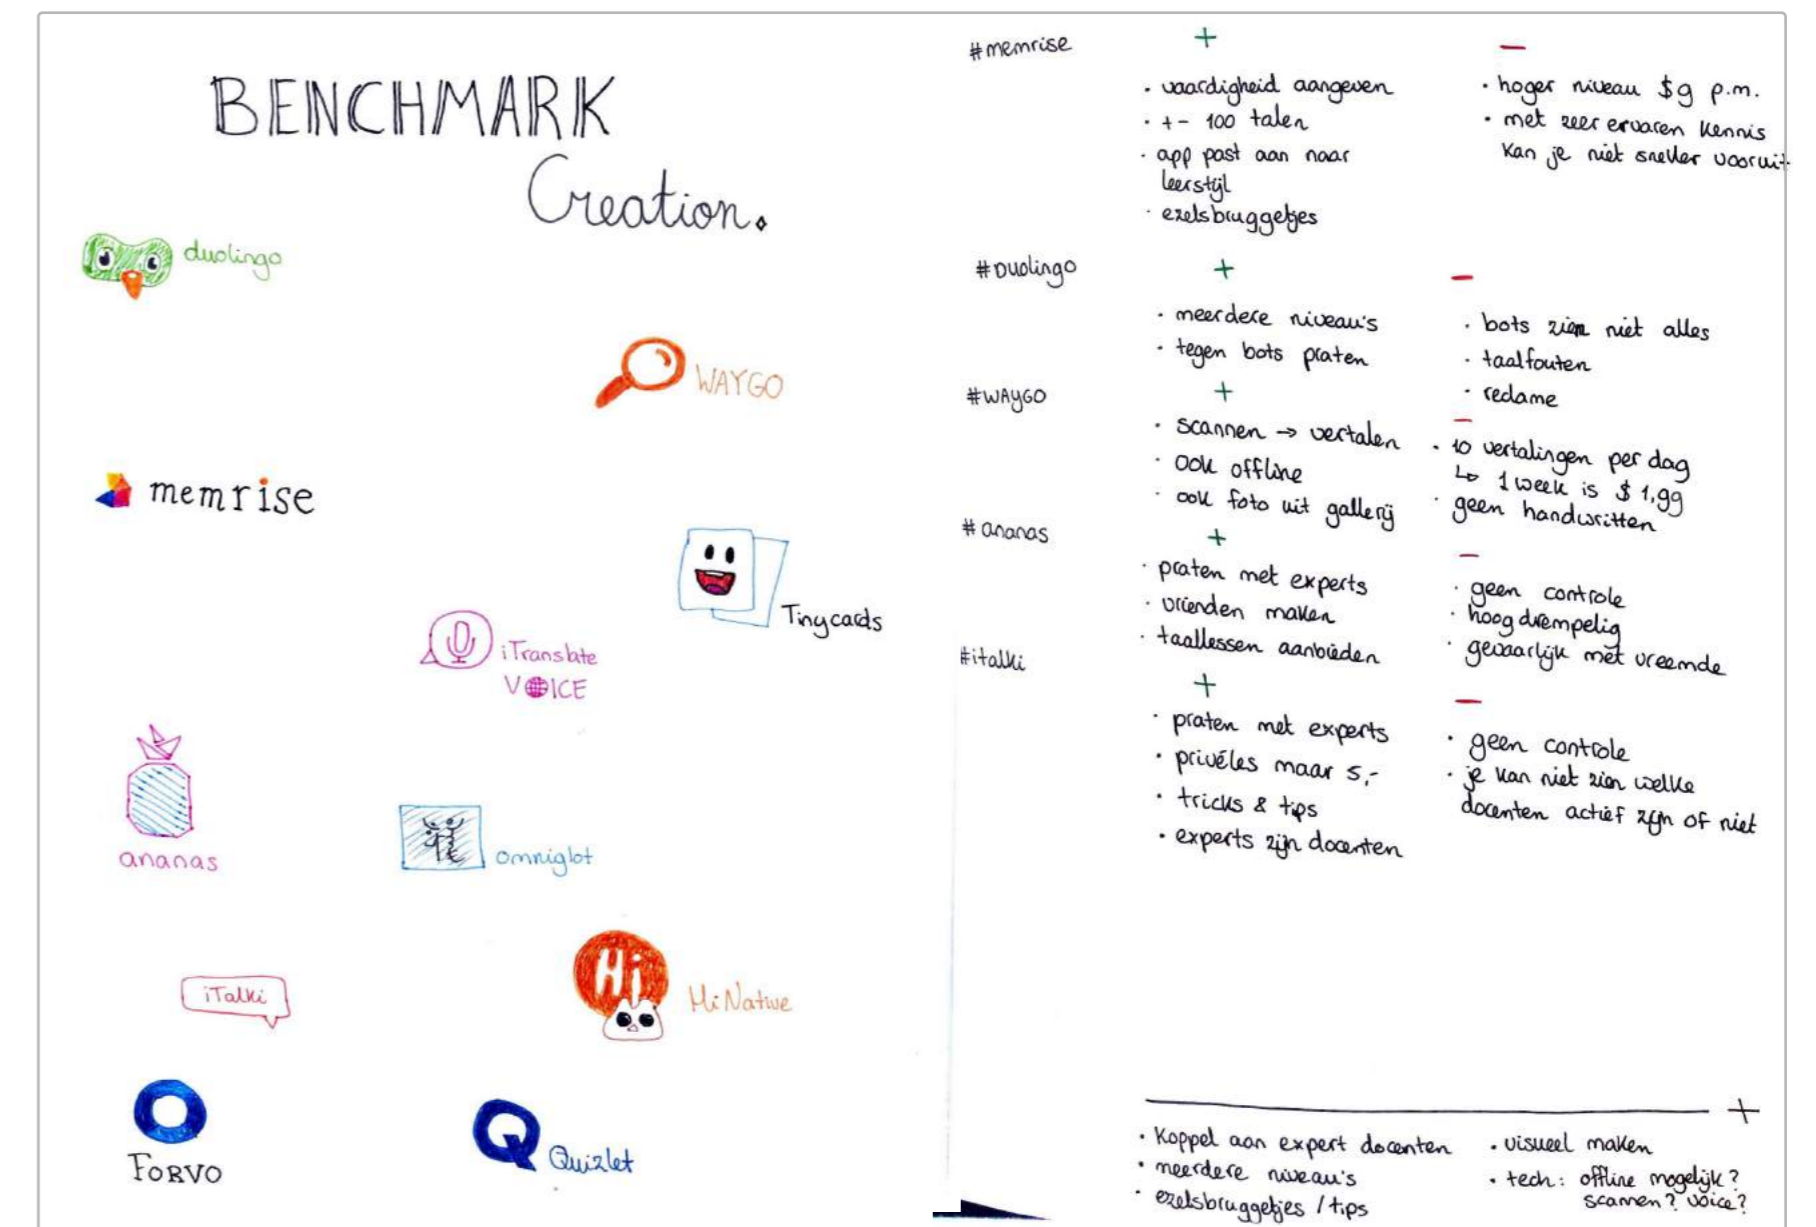 BENCHMARK
Creation.
duolingo
WAYGO
memrise
Tinycards
iTranslate
VOICE
ananas
omniglot
iTalki
Hi
HiNative
FORVO
Quizlet
#memrise
+
-
• vaardigheid aangeven
• +- 100 talen
• app past aan naar
leerstijl
• ezelsbruggetjes
• hoger niveau $9 p.m.
• met zeer ervaren kennis
kan je niet sneller vooruit
#Duolingo
+
-
• meerdere niveau's
• tegen bots praten
• bots zien niet alles
• taalfouten
• reclame
#WAYGO
+
-
• scannen → vertalen
• ook offline
• ook foto uit gallerij
• 10 vertalingen per dag
↳ 1 week is $1,99
• geen handwritten
#ananas
+
-
• praten met experts
• vrienden maken
• taallessen aanbieden
• geen controle
• hoogdrempelig
• gevaarlijk met vreemde
#italki
+
-
• praten met experts
• privéles maar 5,-
• tricks & tips
• experts zijn docenten
• geen controle
• je kan niet zien welke
docenten actief zijn of niet
+
• Koppel aan expert docenten
• meerdere niveau's
• ezelsbruggetjes / tips
• visueel maken
• tech: offline mogelijk?
scannen? voice?